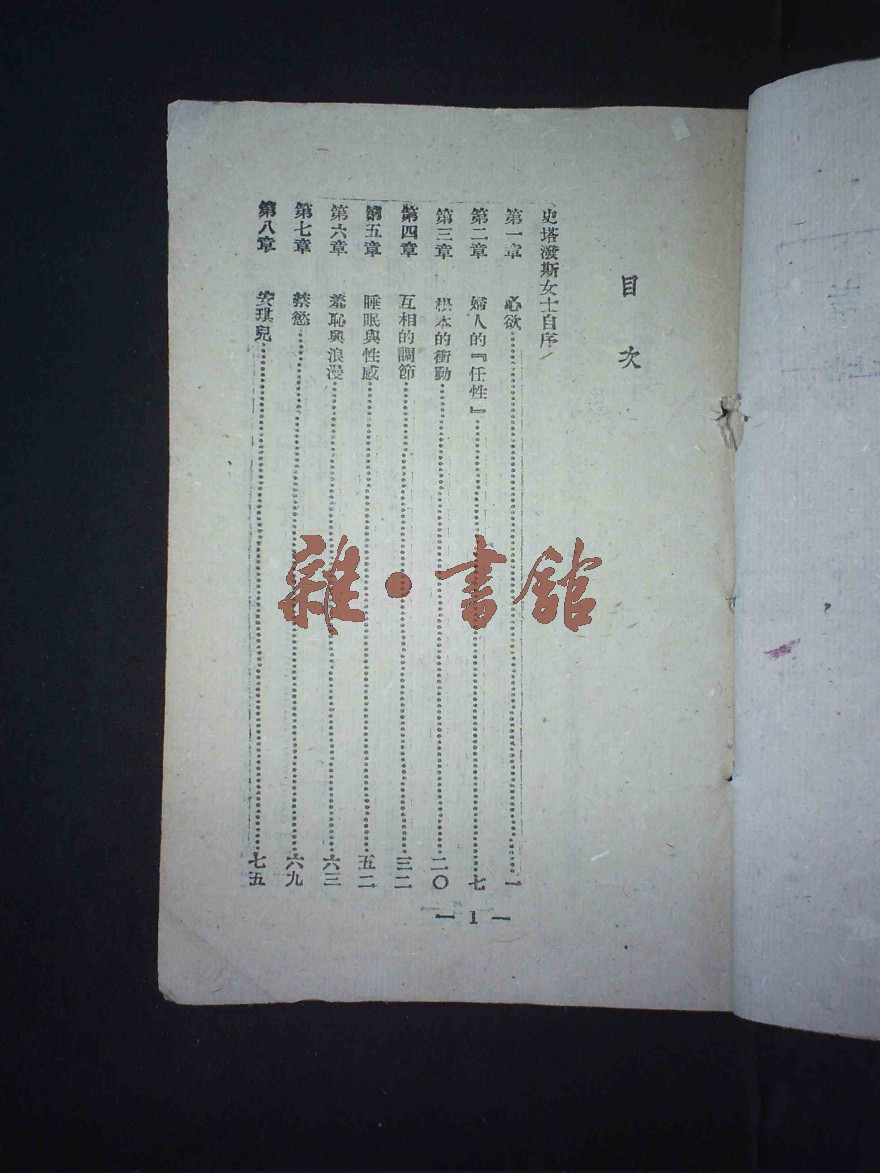 目次
史塔潑斯女士自序
第一章 心欲 一
第二章 婦人的『任性』 七
第三章 根本的衝動 二〇
第四章 互相的調節 三二
第五章 睡眠與性感 五二
第六章 羞恥與浪漫 六三
第七章 禁慾 六九
第八章 安琪兒 七五
— 1 —
雜·書館